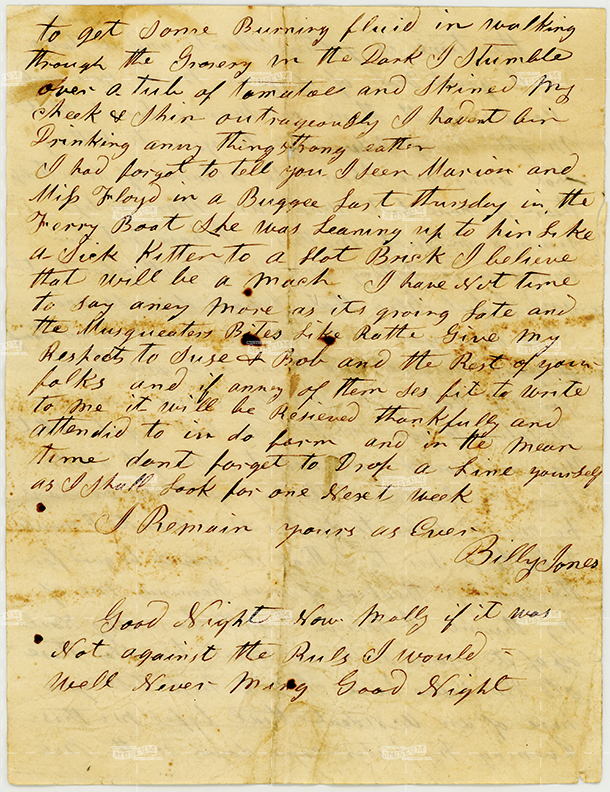 to get some Burning fluid in walking
through the Grosery in the Dark I Stumble
over a tub of tomatoe and Skined my
cheek & Shin outrageously I hadent bin
Drinking anny thing strong eather
I had forgot to tell you I seen Marion and
Miss Floyd in a Buggee Last thursday in the
Ferry Boat She was Leaning up to him Like
a Sick Kitten to a Hot Brick I believe
that will be a mach I have Not time
to say aney more as its groing Late and
the Musqueaters Bites Like Ratte Give my
Respects to Suse & Bob and the Rest of your
folks and if anney of them ses fit to write
to me it will be Resieved thankfully and
attendid to in do form and in the mean
time dont forget to Drop a Line yourself
as I shall Look for one Next week
I Remain yours as Ever
Billy Jones
Good Night Now Molly if it was
Not against the Ruls I would -
well Never Ming Good Night